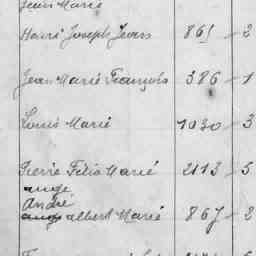 Jean Marie
Henri Joseph Jean 861 - 2
Jean Marie François 386 - 1
Louis Marie 1030 - 3
Pierre Félix Marie 2113 - 5
ange
André
ange albert Marié 867 - 2